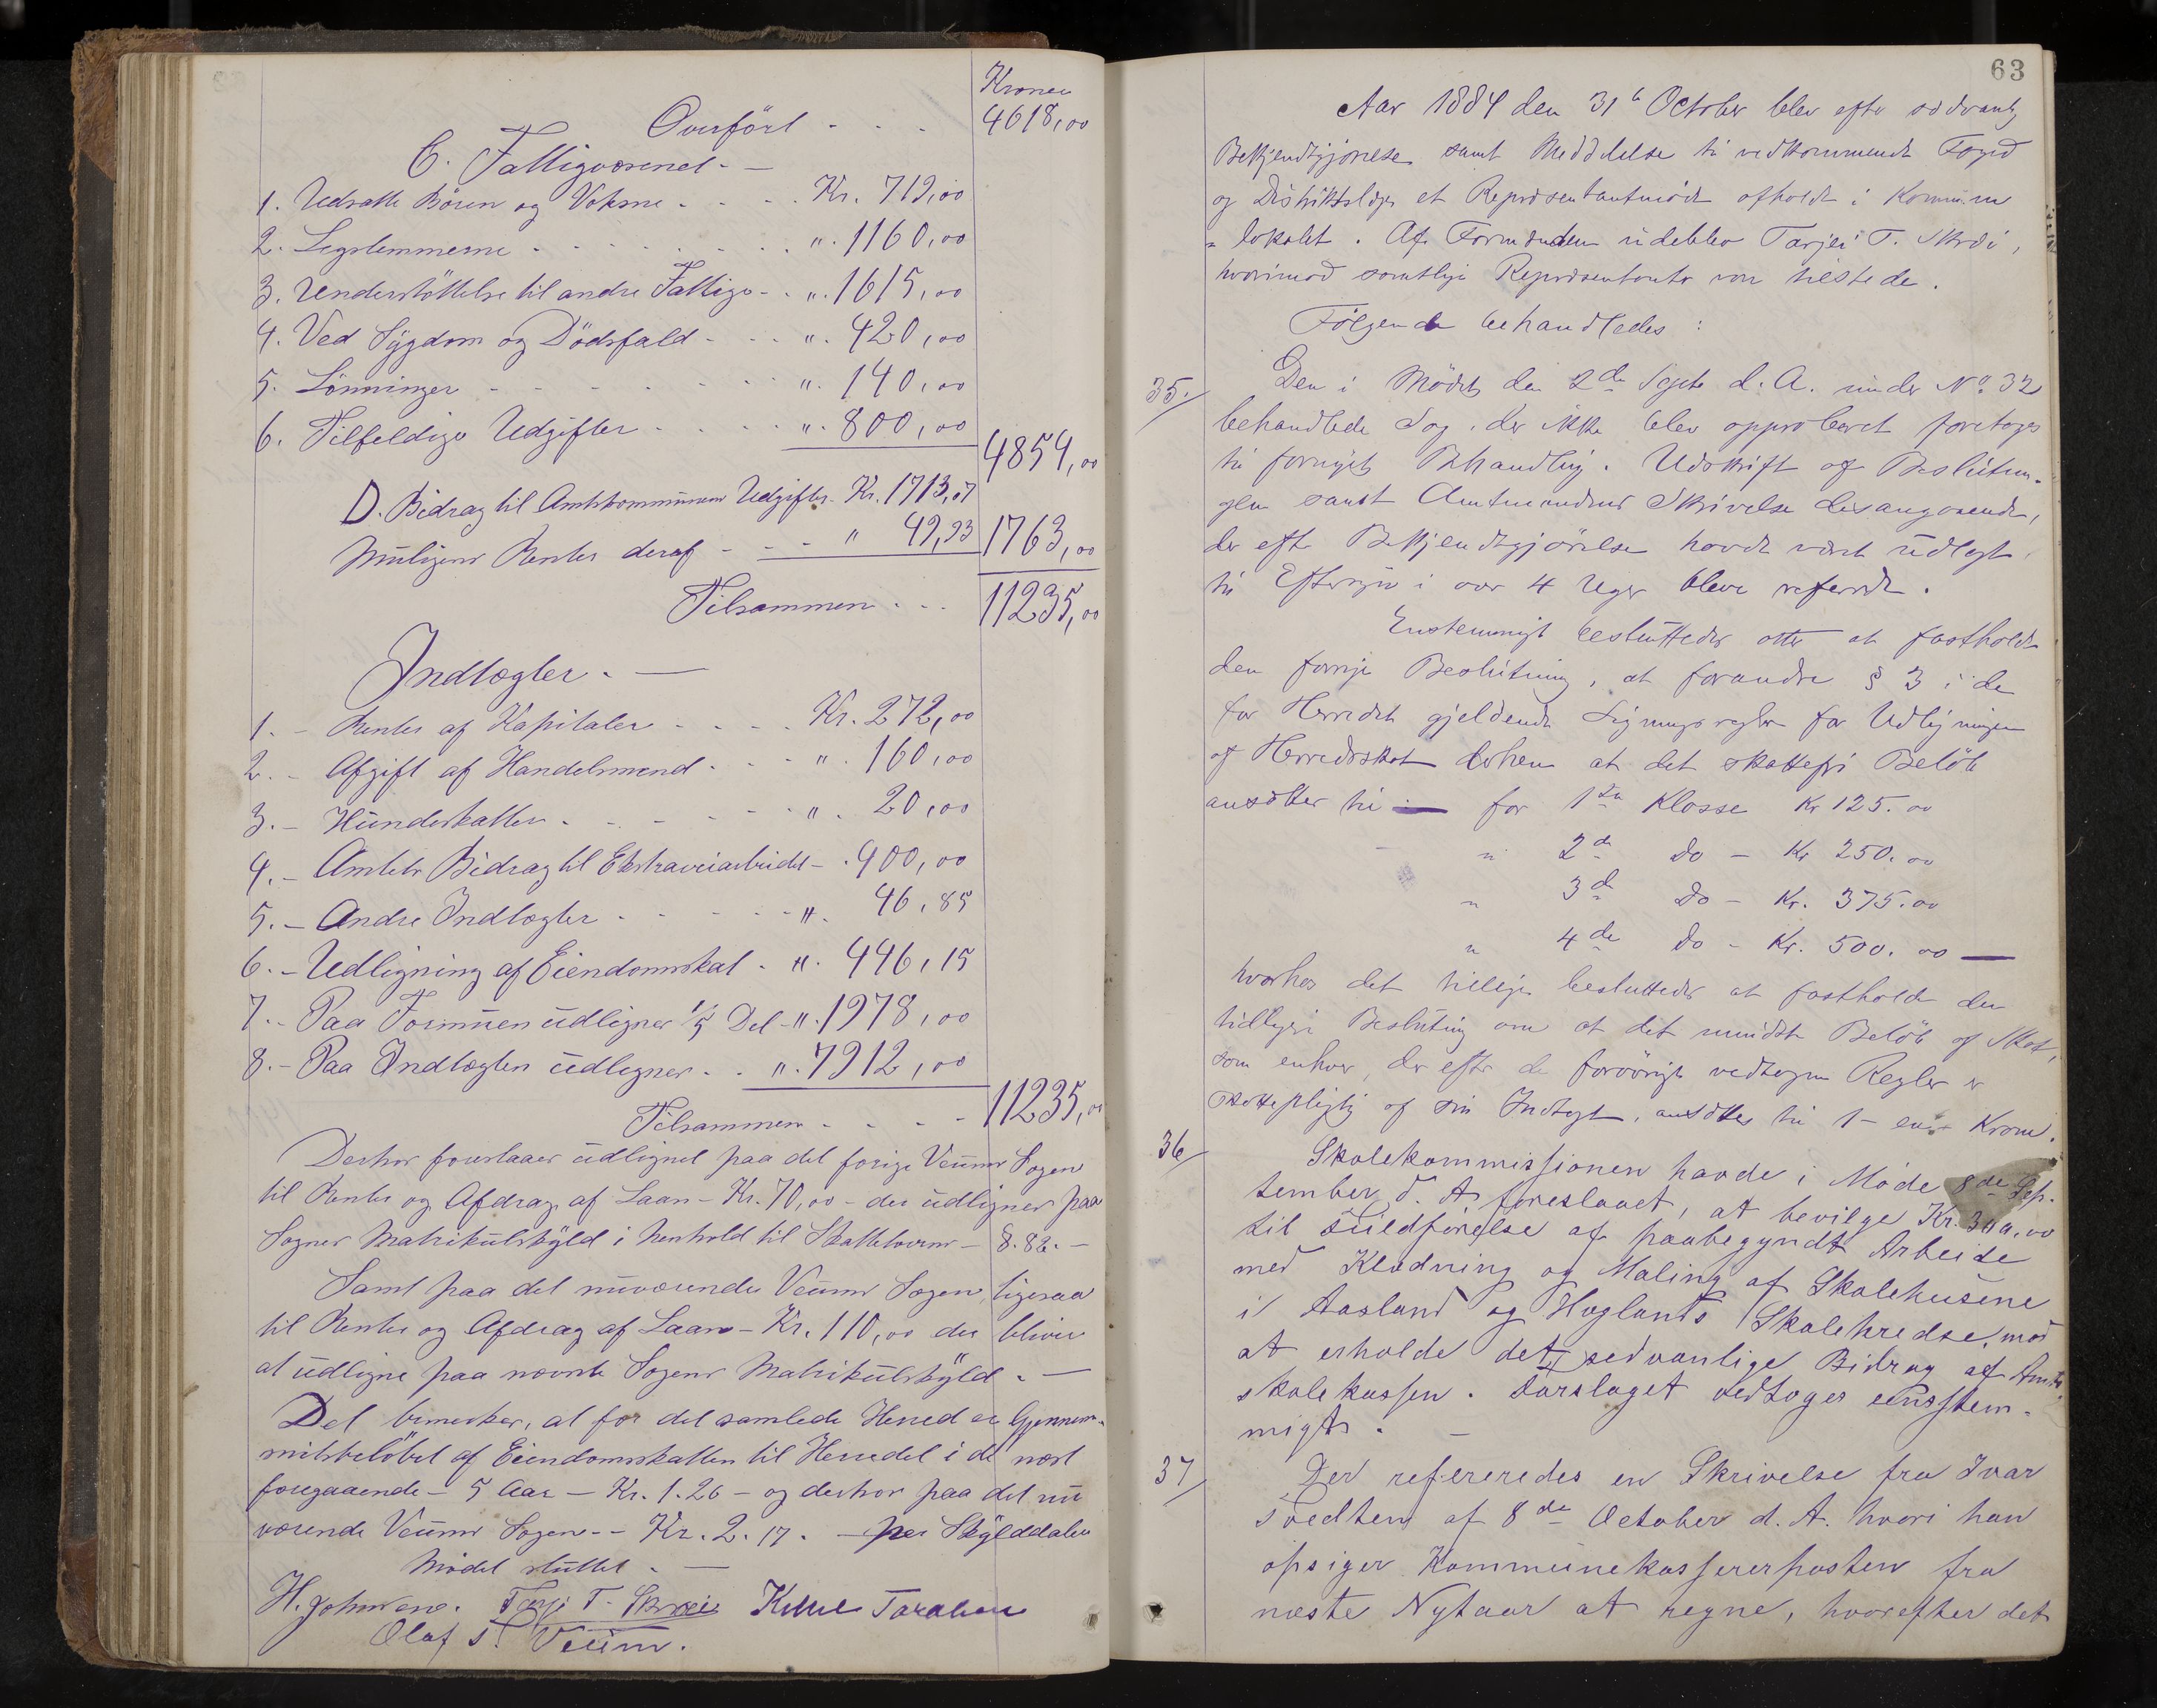 Kroner
Overført - - - 4618,00
C. Fattigvæsenet. —
1. Udsatte Börn og Voksne - - - - Kr. 719,00
2. Lægslemmerne - - - - - - - ". 1160,00
3. Understöttelse til andre Fattige - - ". 1615,00
4. Ved Sygdom og Dödsfald - - - ". 420,00
5. Lönninger - - - - - - - - ". 140,00
6. Tilfeldige Udgifter - - - - - ". 800,00
4854,00
D. Bidrag til Amtskommunens Udgifter - Kr. 1713,07
Muligens Renter deraf - - - " 49,93 1763,00
Tilsammen - - - 11235,00
Indtægter. —
1. - Renter af Kapitaler - - - - Kr. 272,00
2. - Afgift af Handelsmend - - - " . 160,00
3. - Hundeskatten - - - - - - " . 20,00
4. - Amtets Bidrag til Ekstraveiarbeidet - . 400,00
5. - Andre Indtægter - - - - - - ". 46,85
6. - Udligning af Eiendomsskat - ". 446,15
7. - Paa Formuen udlignes 1/5 Del - ". 1978,00
8. - Paa Indtægten udlignes - - ". 7912,00
11235,00
Tilsammen - - - -
Deshor foreslaaes udlignet paa det forige Veums Sogen
til Renter og Afdrag af Laan - Kr. 70,00 - der udlignes paa
Sognes Matrikulskyld i henhold til Skatteloven - 8.82. -
Samt paa det nuværende Veums Sogen ligesaa
til Renter og Afdrag af Laan - Kr. 110,00 der bliver
at udligne paa nævnte Sogens Matrikulskyld . —
Det bemerkes, at for det samlede Herred er Gjennem-
snitsbelöbet af Eiendomsskatten til Herredet i de næst
foregaaende - 5 Aar - Kr. 1.26 - og deshor paa det nu
værende Veums Sogen - - Kr. 2.17. - per Skylddaler
Mödet sluttet. —
H. Johnsen. Tarje T. Skræi
Olaf S. Veum.
63
Aar 1884 den 31te October blev efter sædvanlig
Bekjendtgjørelse samt Meddelelse til vedkommende Foged
og Distriktslæge et Repræsentantmøde afholdt i Kommune
= lokalet. Af Formænden udeblev Tarjei T. Skræi,
hvorimod samtlige Repræsentanter var tilstede.
Følgende behandledes :
35. Den i Mødet den 2den Septe d. A. under No. 32
behandlede Sag, der ikke blev approberet foretoges
til fornyet Behandling. Udskrift af Beslutnin-
gen samt Amtmandens Skrivelse desangaaende,
der efter Bekjendtgjørelse havde været udlagt
til Eftersyn i over 4 Uger bleve refereret.
Enstemmigt besluttedes atter at fastholde
den forrige Beslutning, at forandre § 3 i de
for Herredet gjeldende Ligningsregler for Udligningen
af Herredsskat derhen at det skattefri Beløb
ansættes til — for 1ste Klasse Kr 125.00
" 2de do - Kr 250.00
" 3de do - Kr. 375.00
" 4de do - Kr. 500.00 —
hvorhos det tillige besluttedes at fastholde den
tidligere Beslutning om at det mindste Beløb af Skat,
som enhver, der efter de forøvrigt vedtagne Regler er
skattepligtig af sin Indtægt, ansættes til 1 - en - Krone.
36 Skolekommissionen havde i Møde 8de Sep-
tember d. A. foreslaaet, at bevilge Kr. 300,00
til fuldførelse af paabegyndt Arbeide
med Klædning og Maling af Skolehusene
i Aasland og Høglands Skolekredse, mod
at erholde det sedvanlige Bidrag af Amts-
skolekassen. Forslaget vedtoges eensstem-
migt. —
37 Der refereredes en Skrivelse fra Ivar
Svedten af 8de October d. A. hvori han
opsiger Kommunekassererposten fra
næste Nytaar at regne, hvorefter det